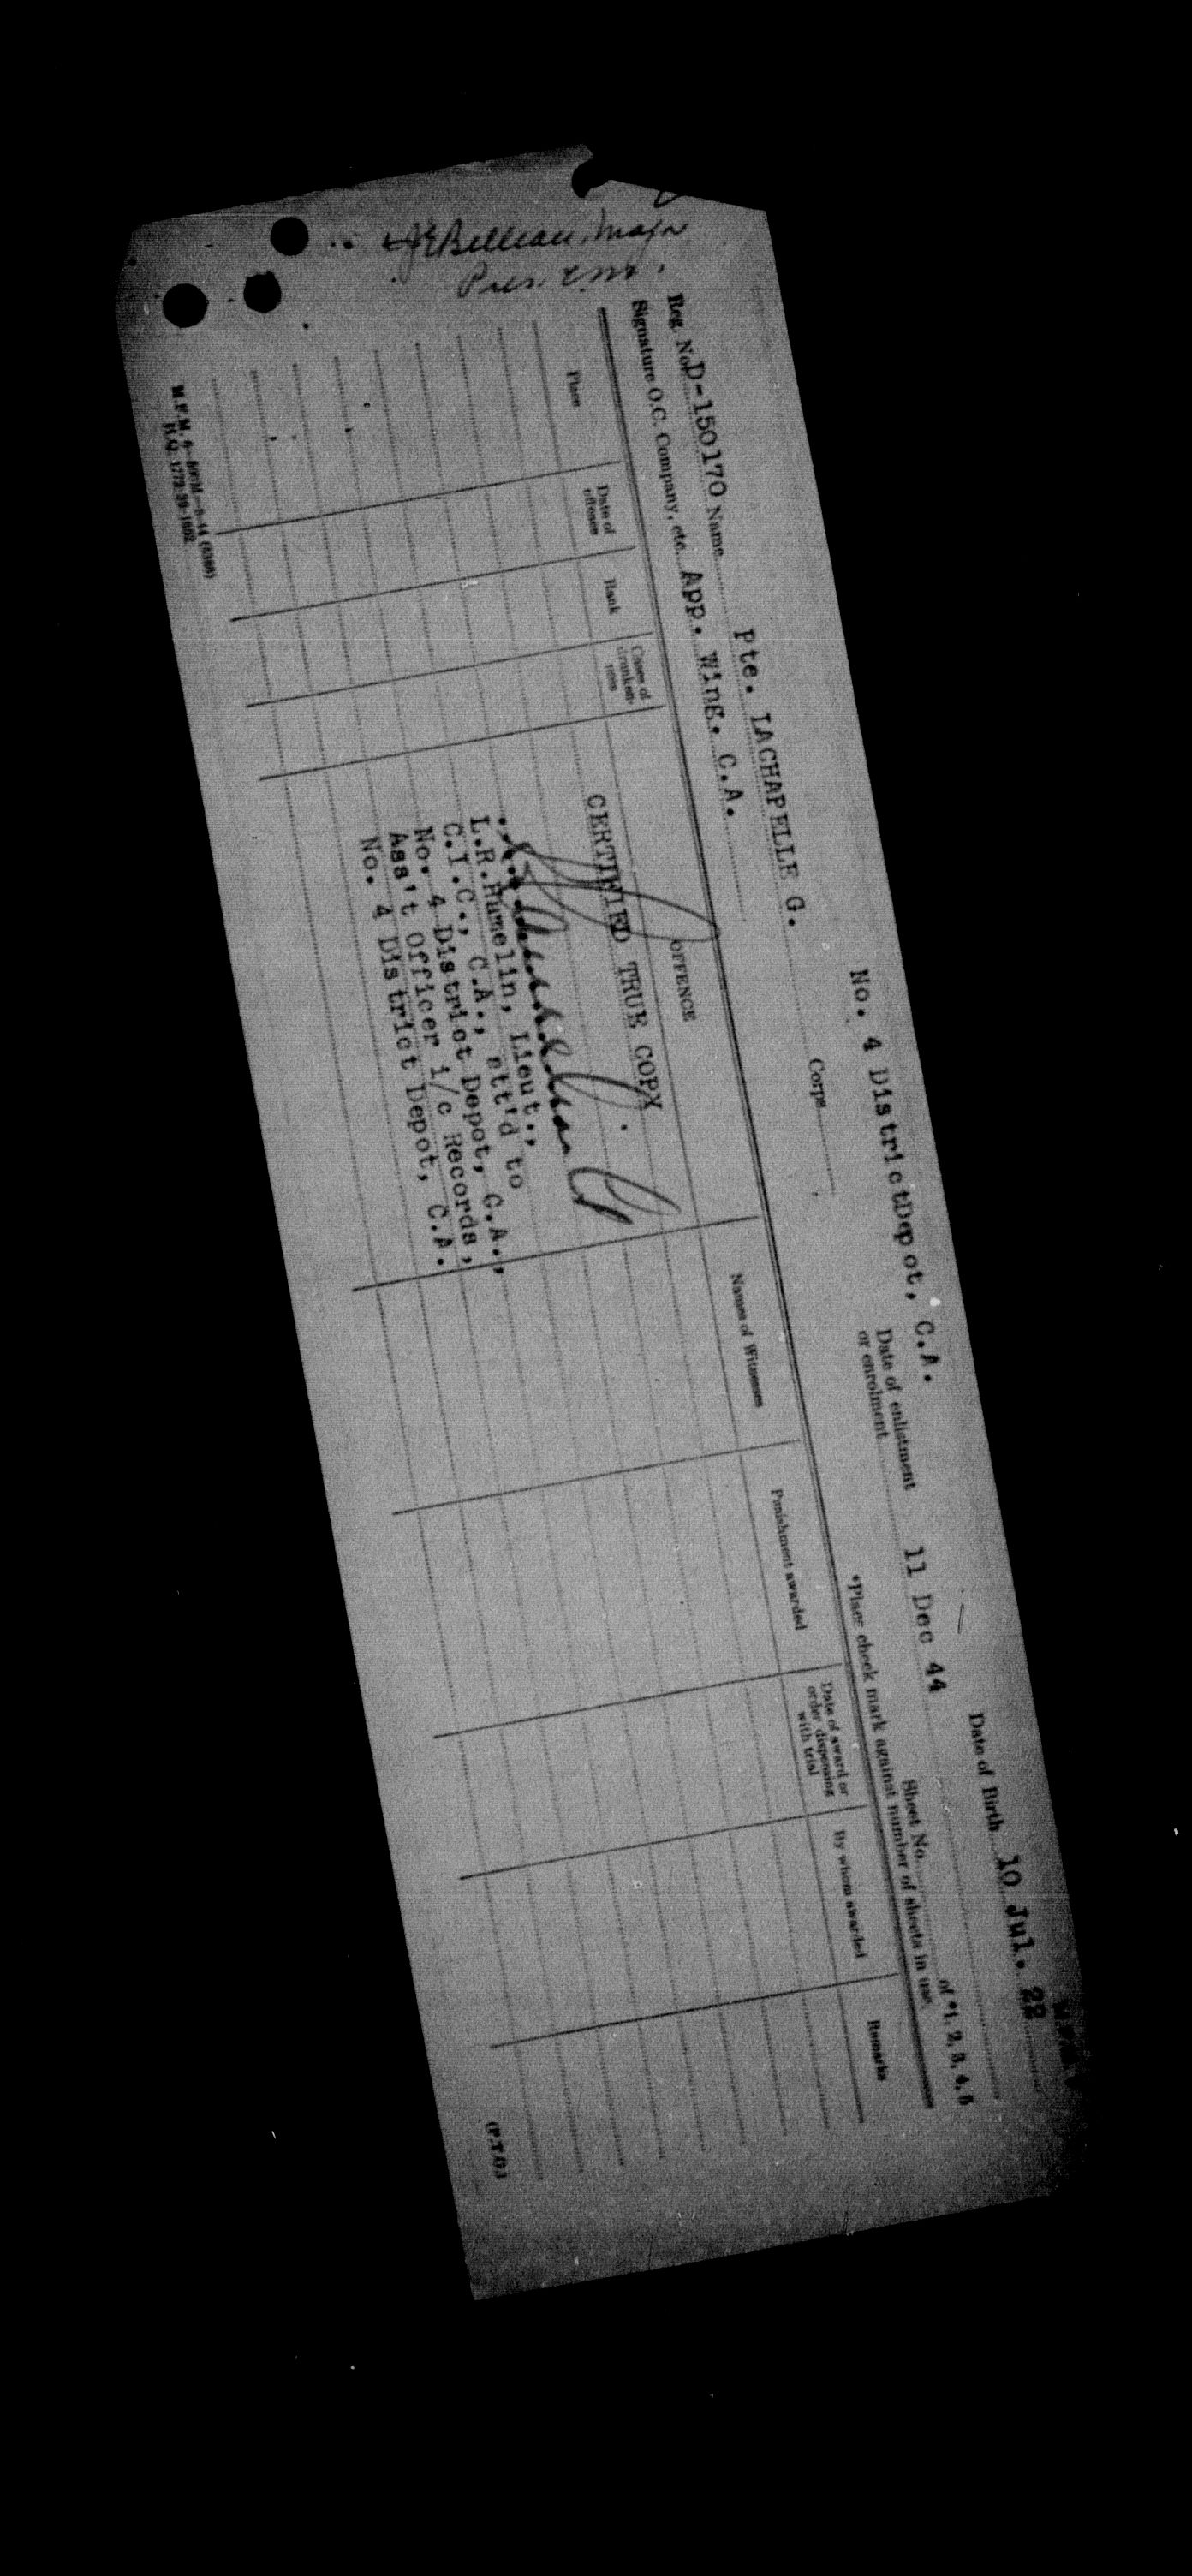 No. 4 DistrictDepot, C.A.
Date of Birth 10 Jul. 22
Reg. No. D-150170 Name Pte. LACHAPELLE G. Corps Date of enlistment or enrolment 11 Dec 44
Sheet No. of *1, 2, 3, 4, 5
Signature O.C. Company, etc. App. Wing. C.A.
*Place check mark against number of sheets in use.
Place
Date of offence
Rank
Cases of drunkenness
OFFENCE
Names of Witnesses
Punishment awarded
Date of award or order dispensing with trial
By whom awarded
Remarks
CERTIFIED TRUE COPY
L.R.Hamelin, Lieut.,
C.I.C., C.A., att'd to
No. 4 District Depot, C.A.,
Ass't Officer i/c Records,
No. 4 District Depot, C.A.
Belleau Major
Pres.
M.F.M. 6
H.Q. 1772-39-1652
(P.T.O.)